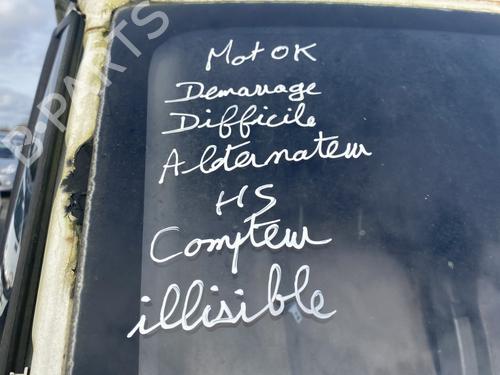 B-PARTS
Mot OK
Demarrage
Difficile
Alternateur
HS
Compteur
illisible